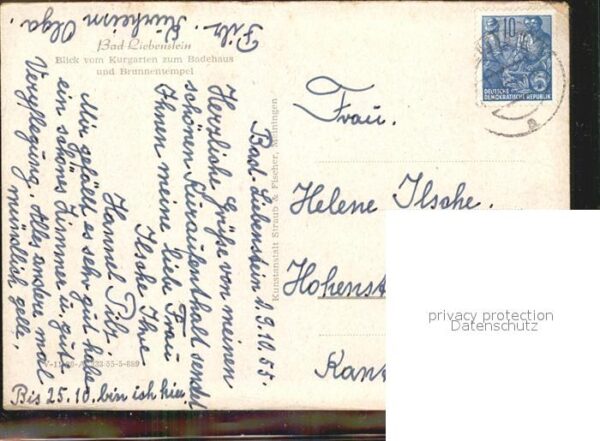 Bad Liebenstein
Blick vom Kurgarten zum Badehaus
und Brunnentempel
Bad-Liebenstein 19.10.55.
Herzliche Grüße von meinen
schönen Kuraufenthalt sendet
Ihnen meine liebe Frau
Ilsche Ihre
Hannel Pilz.
Mir gefällt es sehr gut habe
ein schönes Zimmer u. gute
Verpflegung. Alles andere mal
mündlich gell.
Bis 25.10. bin ich hier.
Pilz. Olga.
Kunstanstalt Straub & Fischer, Meiningen
10
DEUTSCHE
DEMOKRATISCHE REPUBLIK
Frau.
Helene Ilsche.
Hohenst
privacy protection
Datenschutz